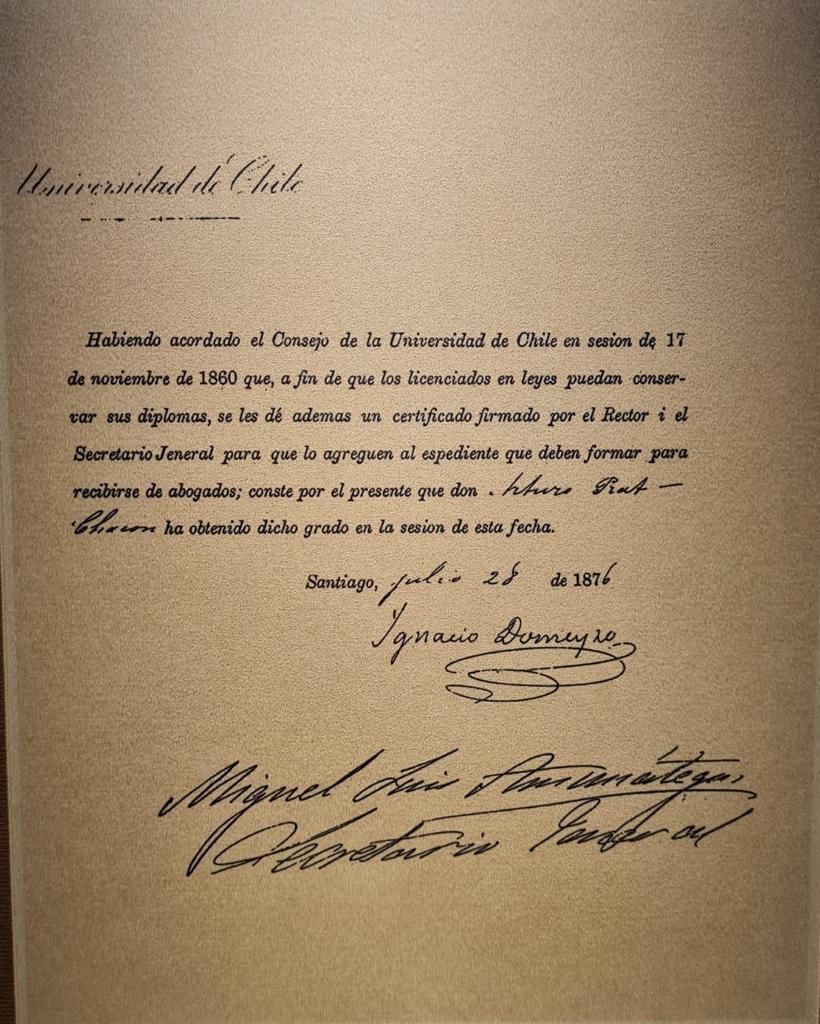 Universidad de Chile
Habiendo acordado el Consejo de la Universidad de Chile en sesion de 17
de noviembre de 1860 que, a fin de que los licenciados en leyes puedan conser-
var sus diplomas, se les dé ademas un certificado firmado por el Rector i el
Secretario Jeneral para que lo agreguen al espediente que deben formar para
recibirse de abogados; conste por el presente que don Arturo Prat —
Chacon ha obtenido dicho grado en la sesion de esta fecha.
Santiago, julio 28 de 1876
Ignacio Domeyko
Miguel Luis Amunátegui
Secretario Jeneral